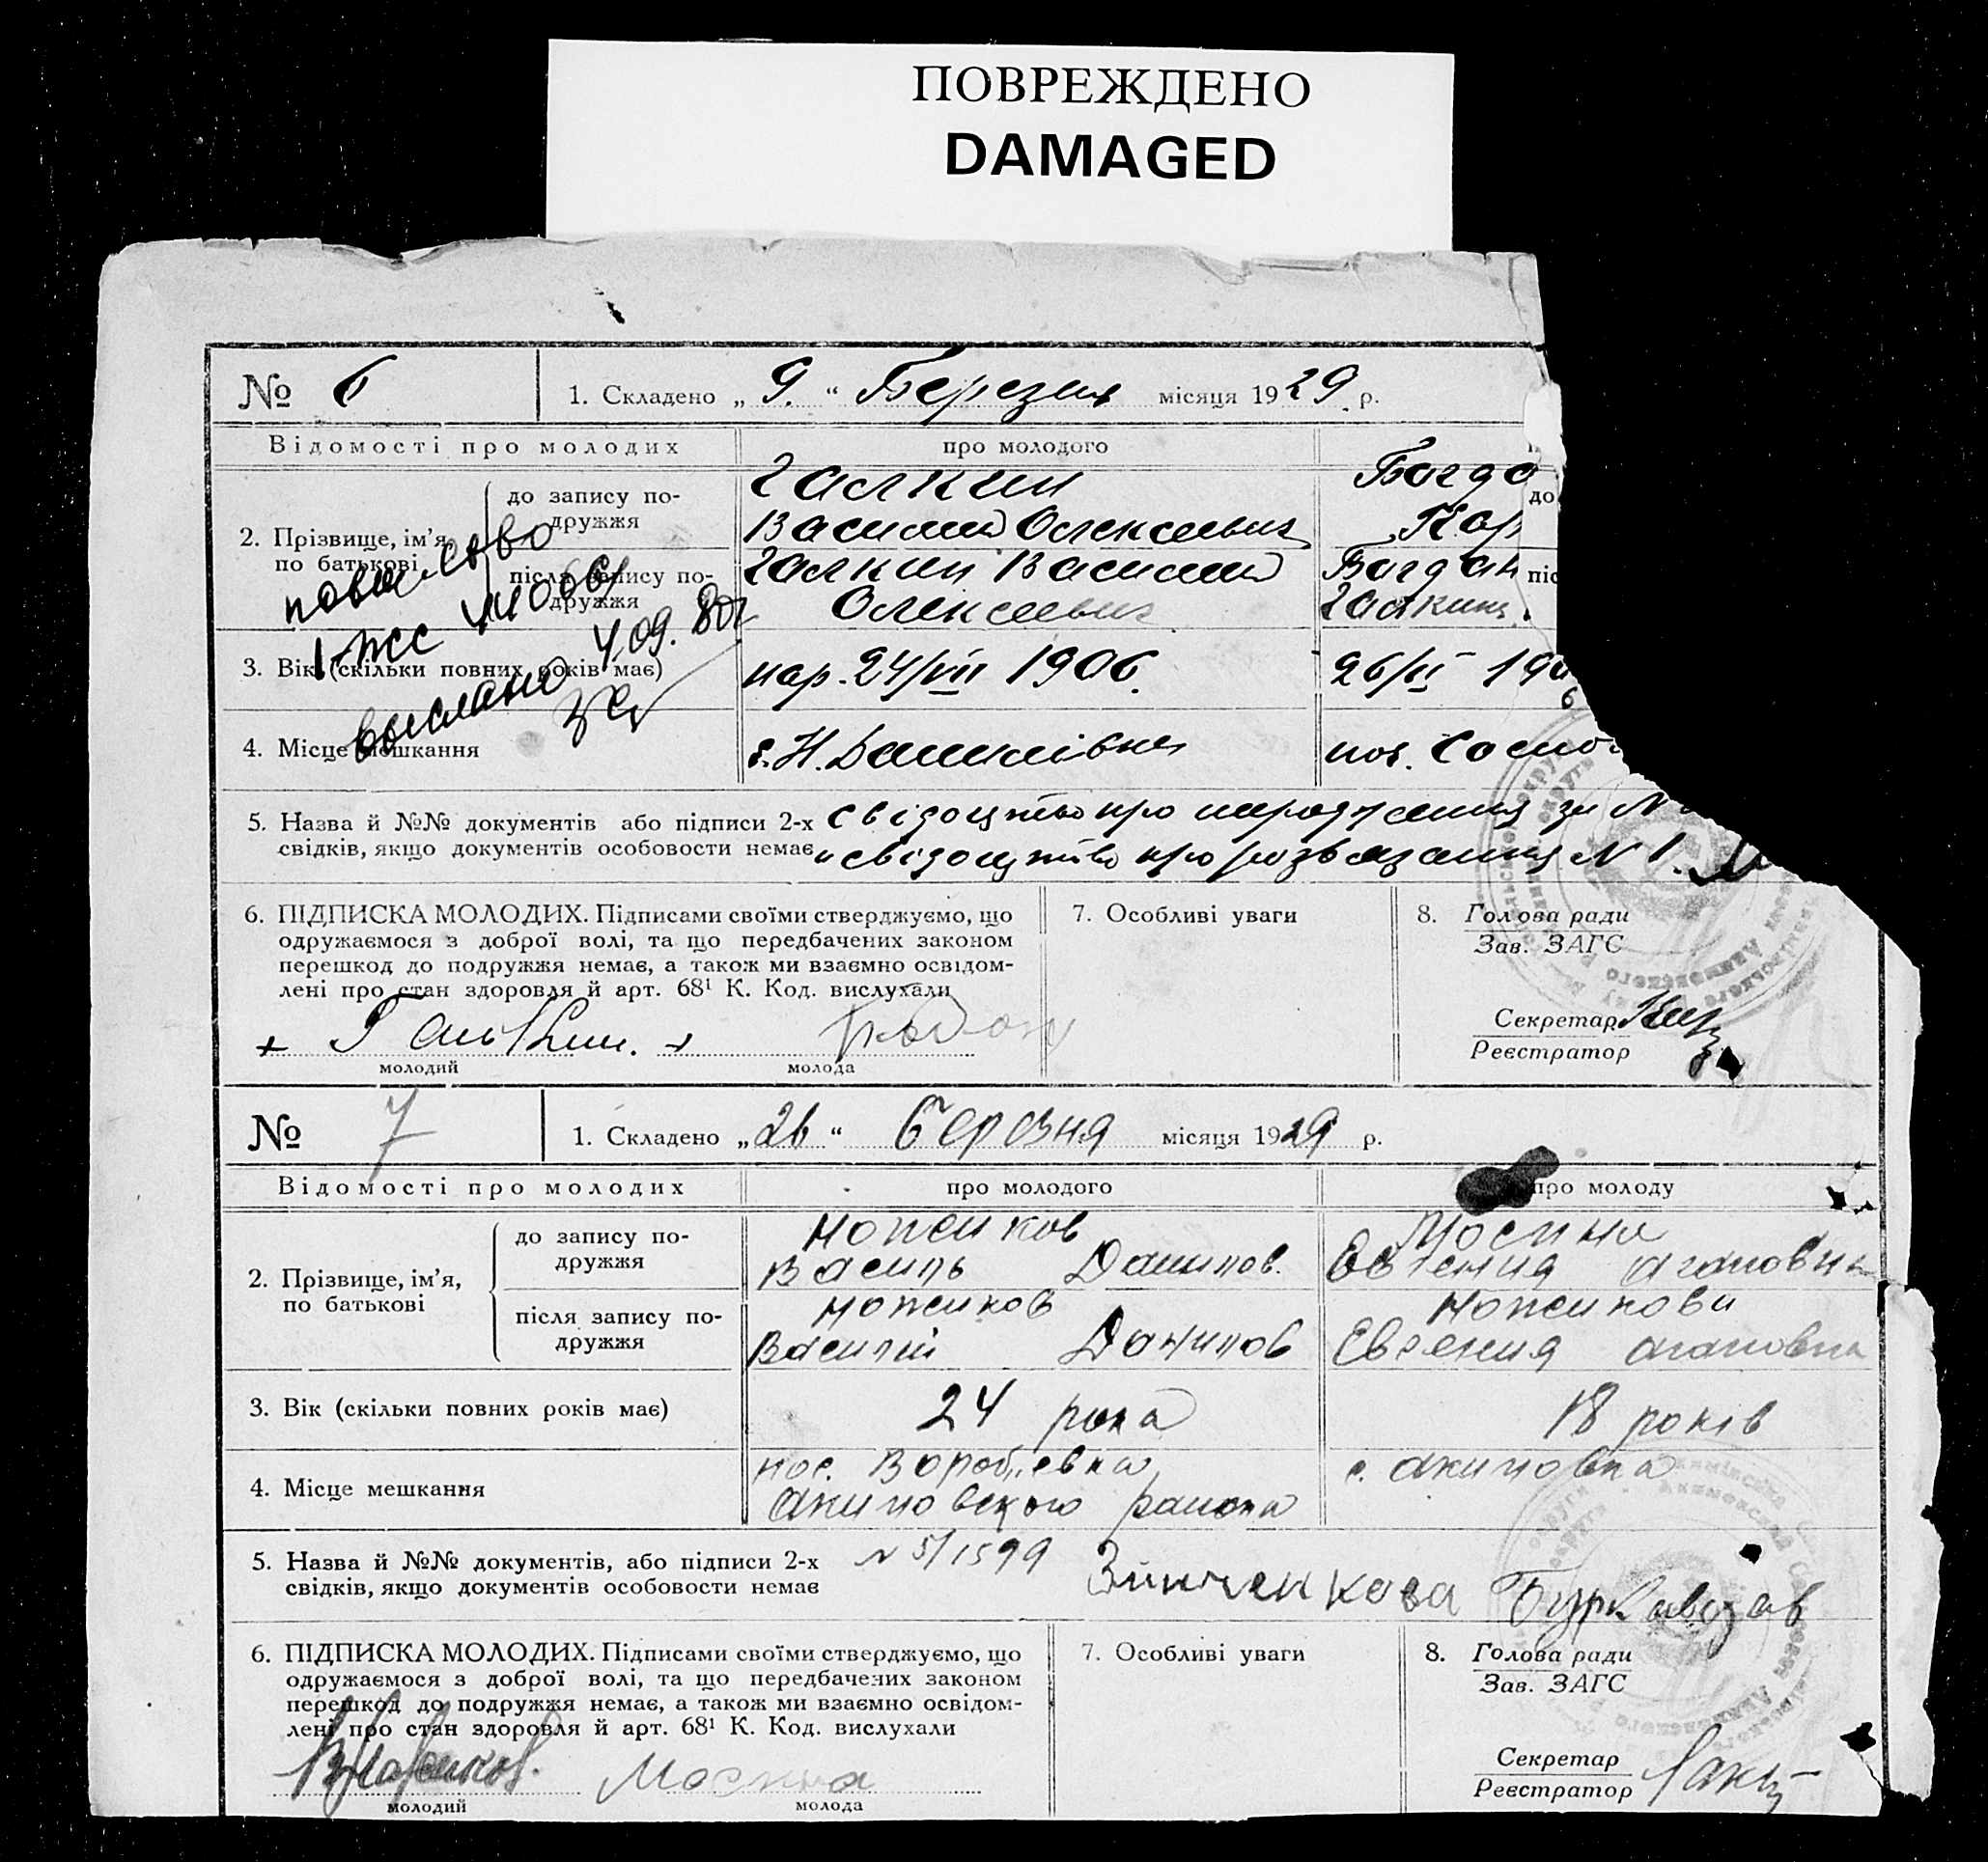 ПОВРЕЖДЕНО
DAMAGED
№ 6
1. Складено „ 9. “ Березня місяця 1929 р.
Відомості про молодих
про молодого
2. Прізвище, ім'я, по батькові
до запису по-
дружжя
Галкин
Василий Олексеевич
Богда
до
Кар
після запису по-
дружжя
Галкин Василий
Олексеевич
Богдан
піс
Галкина
повт. свво
І-ЖС
выслано 4.09.80г
3. Вік (скільки повних років має)
нар. 24/VII 1906.
26/II 19
4. Місце мешкання
с. Н. Данилівка
пос. Сосно
5. Назва й №№ документів або підписи 2-х
свідків, якщо документів особовости немає
свідоцтво про народження за №
и свідоцтво про розвязання № 1.
6. ПІДПИСКА МОЛОДИХ. Підписами своїми стверджуємо, що
одружаємося з доброї волі, та що передбачених законом
перешкод до подружжя немає, а також ми взаємно освідом-
лені про стан здоровля й арт. 68¹ К. Код. вислухали
7. Особливі уваги
8. Голова ради
Зав. ЗАГС
Секретар
Реєстратор
+ Галкин. +
молодий
молода
№ 7
1. Складено „26“ березня місяця 1929 р.
Відомості про молодих
про молодого
про молоду
2. Прізвище, ім'я,
по батькові
до запису по-
дружжя
Ножиков
Василь Данилов.
Мосина
Евгения Агаповна
після запису по-
дружжя
Ножиков
Василий Данилов
Ножикова
Евгения Агаповна
3. Вік (скільки повних років має)
24 рока
18 років
4. Місце мешкання
пос. Воробьевка
Акимовского района
с. Акимовка
5. Назва й №№ документів, або підписи 2-х
свідків, якщо документів особовости немає
№ 5/1599 Зинченкова
6. ПІДПИСКА МОЛОДИХ. Підписами своїми стверджуємо, що
одружаємося з доброї волі, та що передбачених законом
перешкод до подружжя немає, а також ми взаємно освідом-
лені про стан здоровля й арт. 68¹ К. Код. вислухали
7. Особливі уваги
8. Голова ради
Зав. ЗАГС
Секретар
Реєстратор
ВНожиков. Мосина
молодий
молода